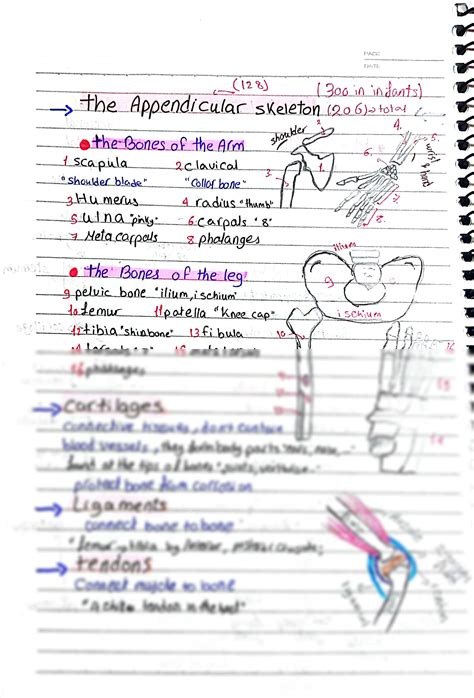 PAGE
DATE
(128)
(300 in indants)
the Appendicular skeleton (206)→total
the Bones of the Arm
shoulder
1 scapula 2 clavical
"shoulder blade" "Collor bone"
3 Humerus 4 radius "thumb"
5 Ulna "pinky" 6 carpals "8"
7 Metacarpals 8 phalanges
2. 1. 3.
4. 5. 6. 7. 8.
wrist & hand
the Bones of the leg
9 pelvic bone "ilium, ischium"
10 femur 11 patella "Knee cap"
12 tibia "shinbone" 13 fibula
14 tarsals "7" 15 metatarsals
16 phalanges
ilium
9
ischium
10
16
15
14
Cartilages
connective tissues, don't contain
blood vessels, they form body parts "ears, nose
found at the tips of bones
protect bone from corrosion
Ligaments
connect bone to bone
tendons
Connect muscle to bone